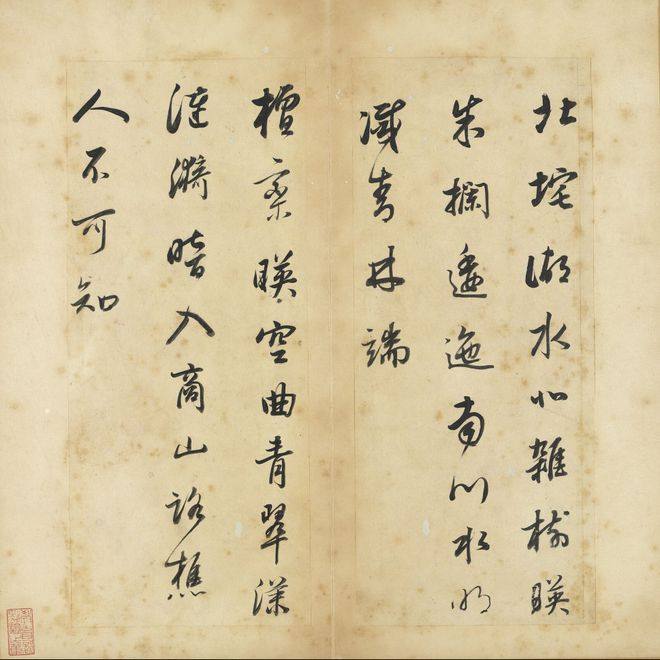 北垞湖水北雜樹暎
朱欄逶迤南川水明
滅青林端
檀欒暎空曲青翠漾
漣漪暗入商山路樵
人不可知